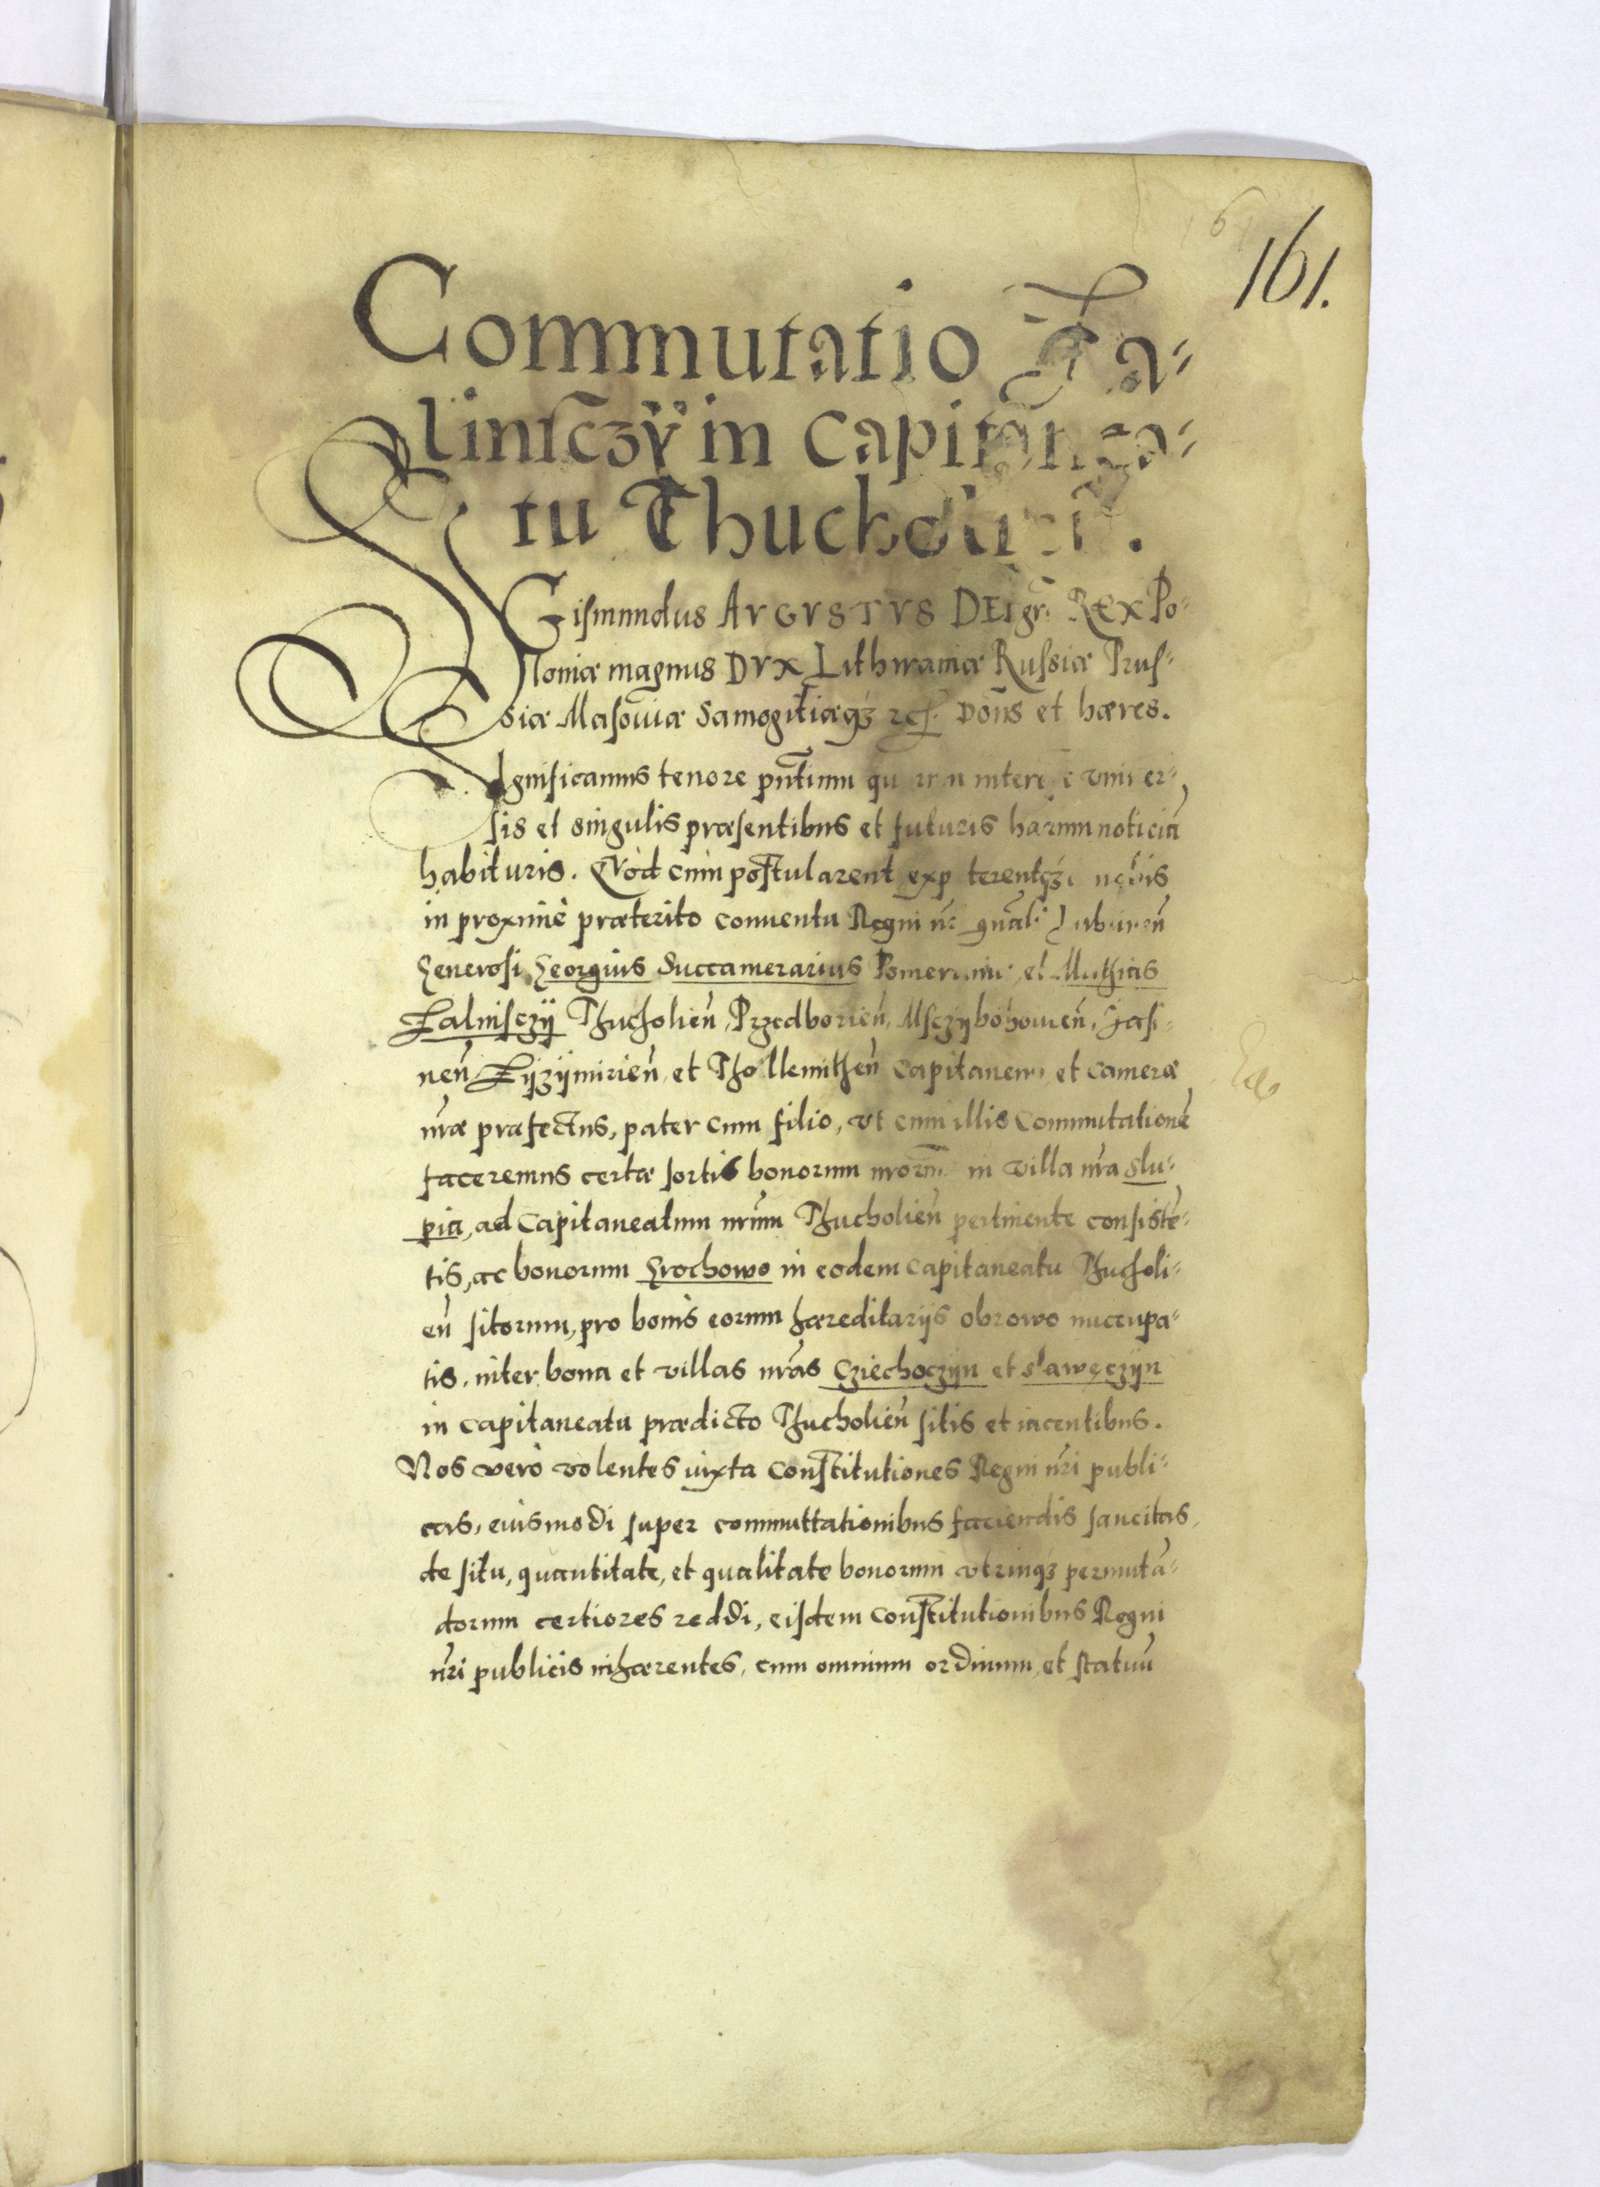 161.
Commutatio Za-
linsczÿ in Capitanea-
tu Thucholien̄.
Sigismundus AVGVSTVS DEI gr̄a REX Po-
loniæ magnus DVX Lithwaniæ Russiæ Prus-
siæ Masoviæ Samogitiæqȝ Dom̄s et hæres.
Significamus tenore pn̄tium quorum interest vniver-
sis et singulis præsentibus et futuris harum noticiā
habituris. Qvòd cum postularent a nobis
in proximè præterito conuentu Regni nr̄i gn̄ali Lublinen̄
Generosi Georgius Succamerarius Pomeraniæ et Mathias
Zalinsczÿ Thucholien̄, Przedborien̄, Msczÿbohowien̄, Gasi-
nen̄, Zÿzÿmirien̄, et Thollemithen̄ Capitaneus, et cameræ
nr̄æ præfectus, pater cum filio, vt cum illis Commutationē
faceremus certæ sortis bonorum nr̄orum in villa nr̄a Slu-
pia, ad Capitaneatum nr̄um Thucholien̄ pertinente consistē-
tis, ac bonorum Grochowo in eodem Capitaneatu Thucholi-
en̄ sitorum, pro bonis eorum hæreditarijs Obrowo nuccupa-
tis, inter bona et villas nr̄as Cziechoczÿn et Sławęczÿn
in Capitaneatu prædicto Thucholien̄ sitis et iacentibus.
Nos verò volentes iuxta Constitutiones Regni nr̄i publi-
cas, eiusmodi super commuttationibus faciendis sancitas,
de situ, quantitate, et qualitate bonorum vtrinqȝ permutā-
dorum certiores reddi, eisdem Constitutionibus Regni
nr̄i publicis inhærentes, cum omnium ordinum, et statuū